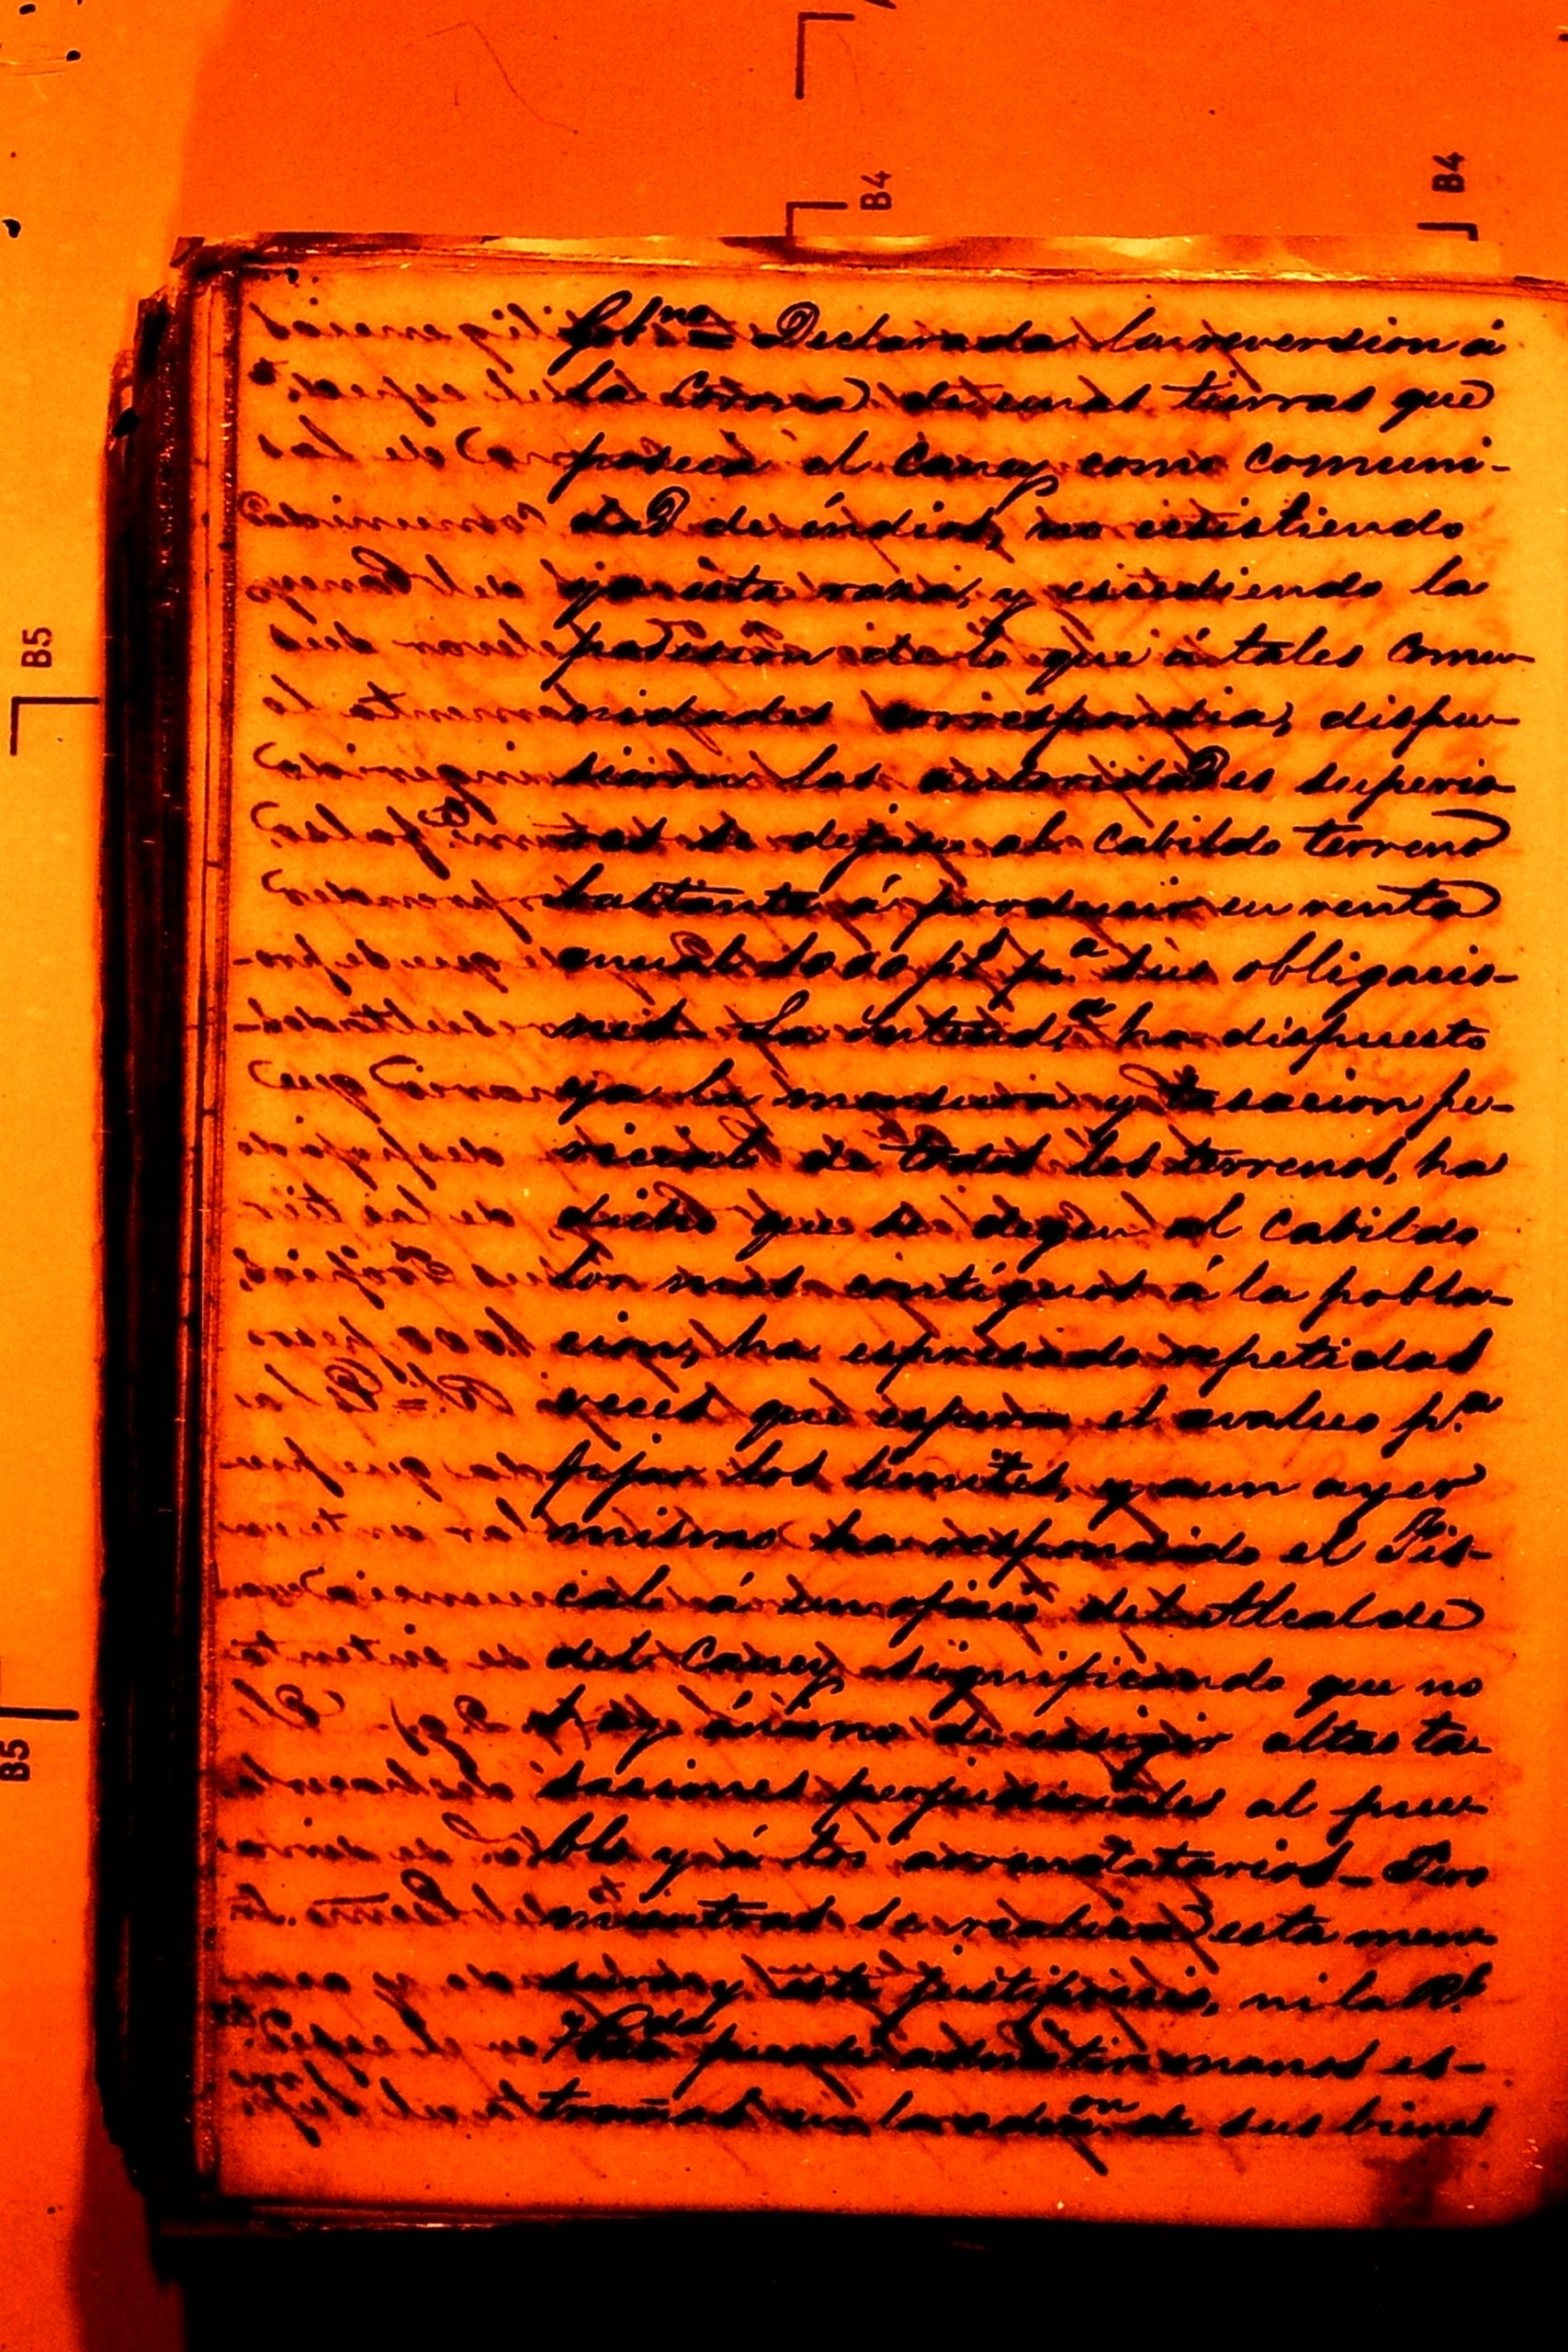 B4
B4
B5
B5
Gobno = Declarada la reversion á
la Corona de unas tierras que
poseia el Caney como comuni-
dad de indios, no ecsistiendo
ya esta raza, y escediendo la
posesion de lo que á tales comu-
nidades correspondia, dispu-
sieron las autoridades superio-
res se dejase al cabildo terreno
bastante á producir en renta
anual 1000 ps. pa. sus obligacio-
nes. La Intenda. ha dispuesto
ya la mensura y tasacion pe-
ricial de todos los terrenos, ha
dicho que se dejen al cabildo
los mas contíguos á la pobla-
cion, ha espresado repetidas
veces que espera el avaluo pa.
fijar los limites, y aun ayer
mismo ha respondido el Fis-
cal á un oficio del Alcalde
del Caney significando que no
hay ánimo de ecsigir altas ta-
saciones perjudiciales al pue-
blo y á los arrendatarios - Pero
mientras se realiza esta men-
sura y este justiprecio, ni la Rl.
Hada. puede admitir manos es-
trañas en la admon. de sus bienes